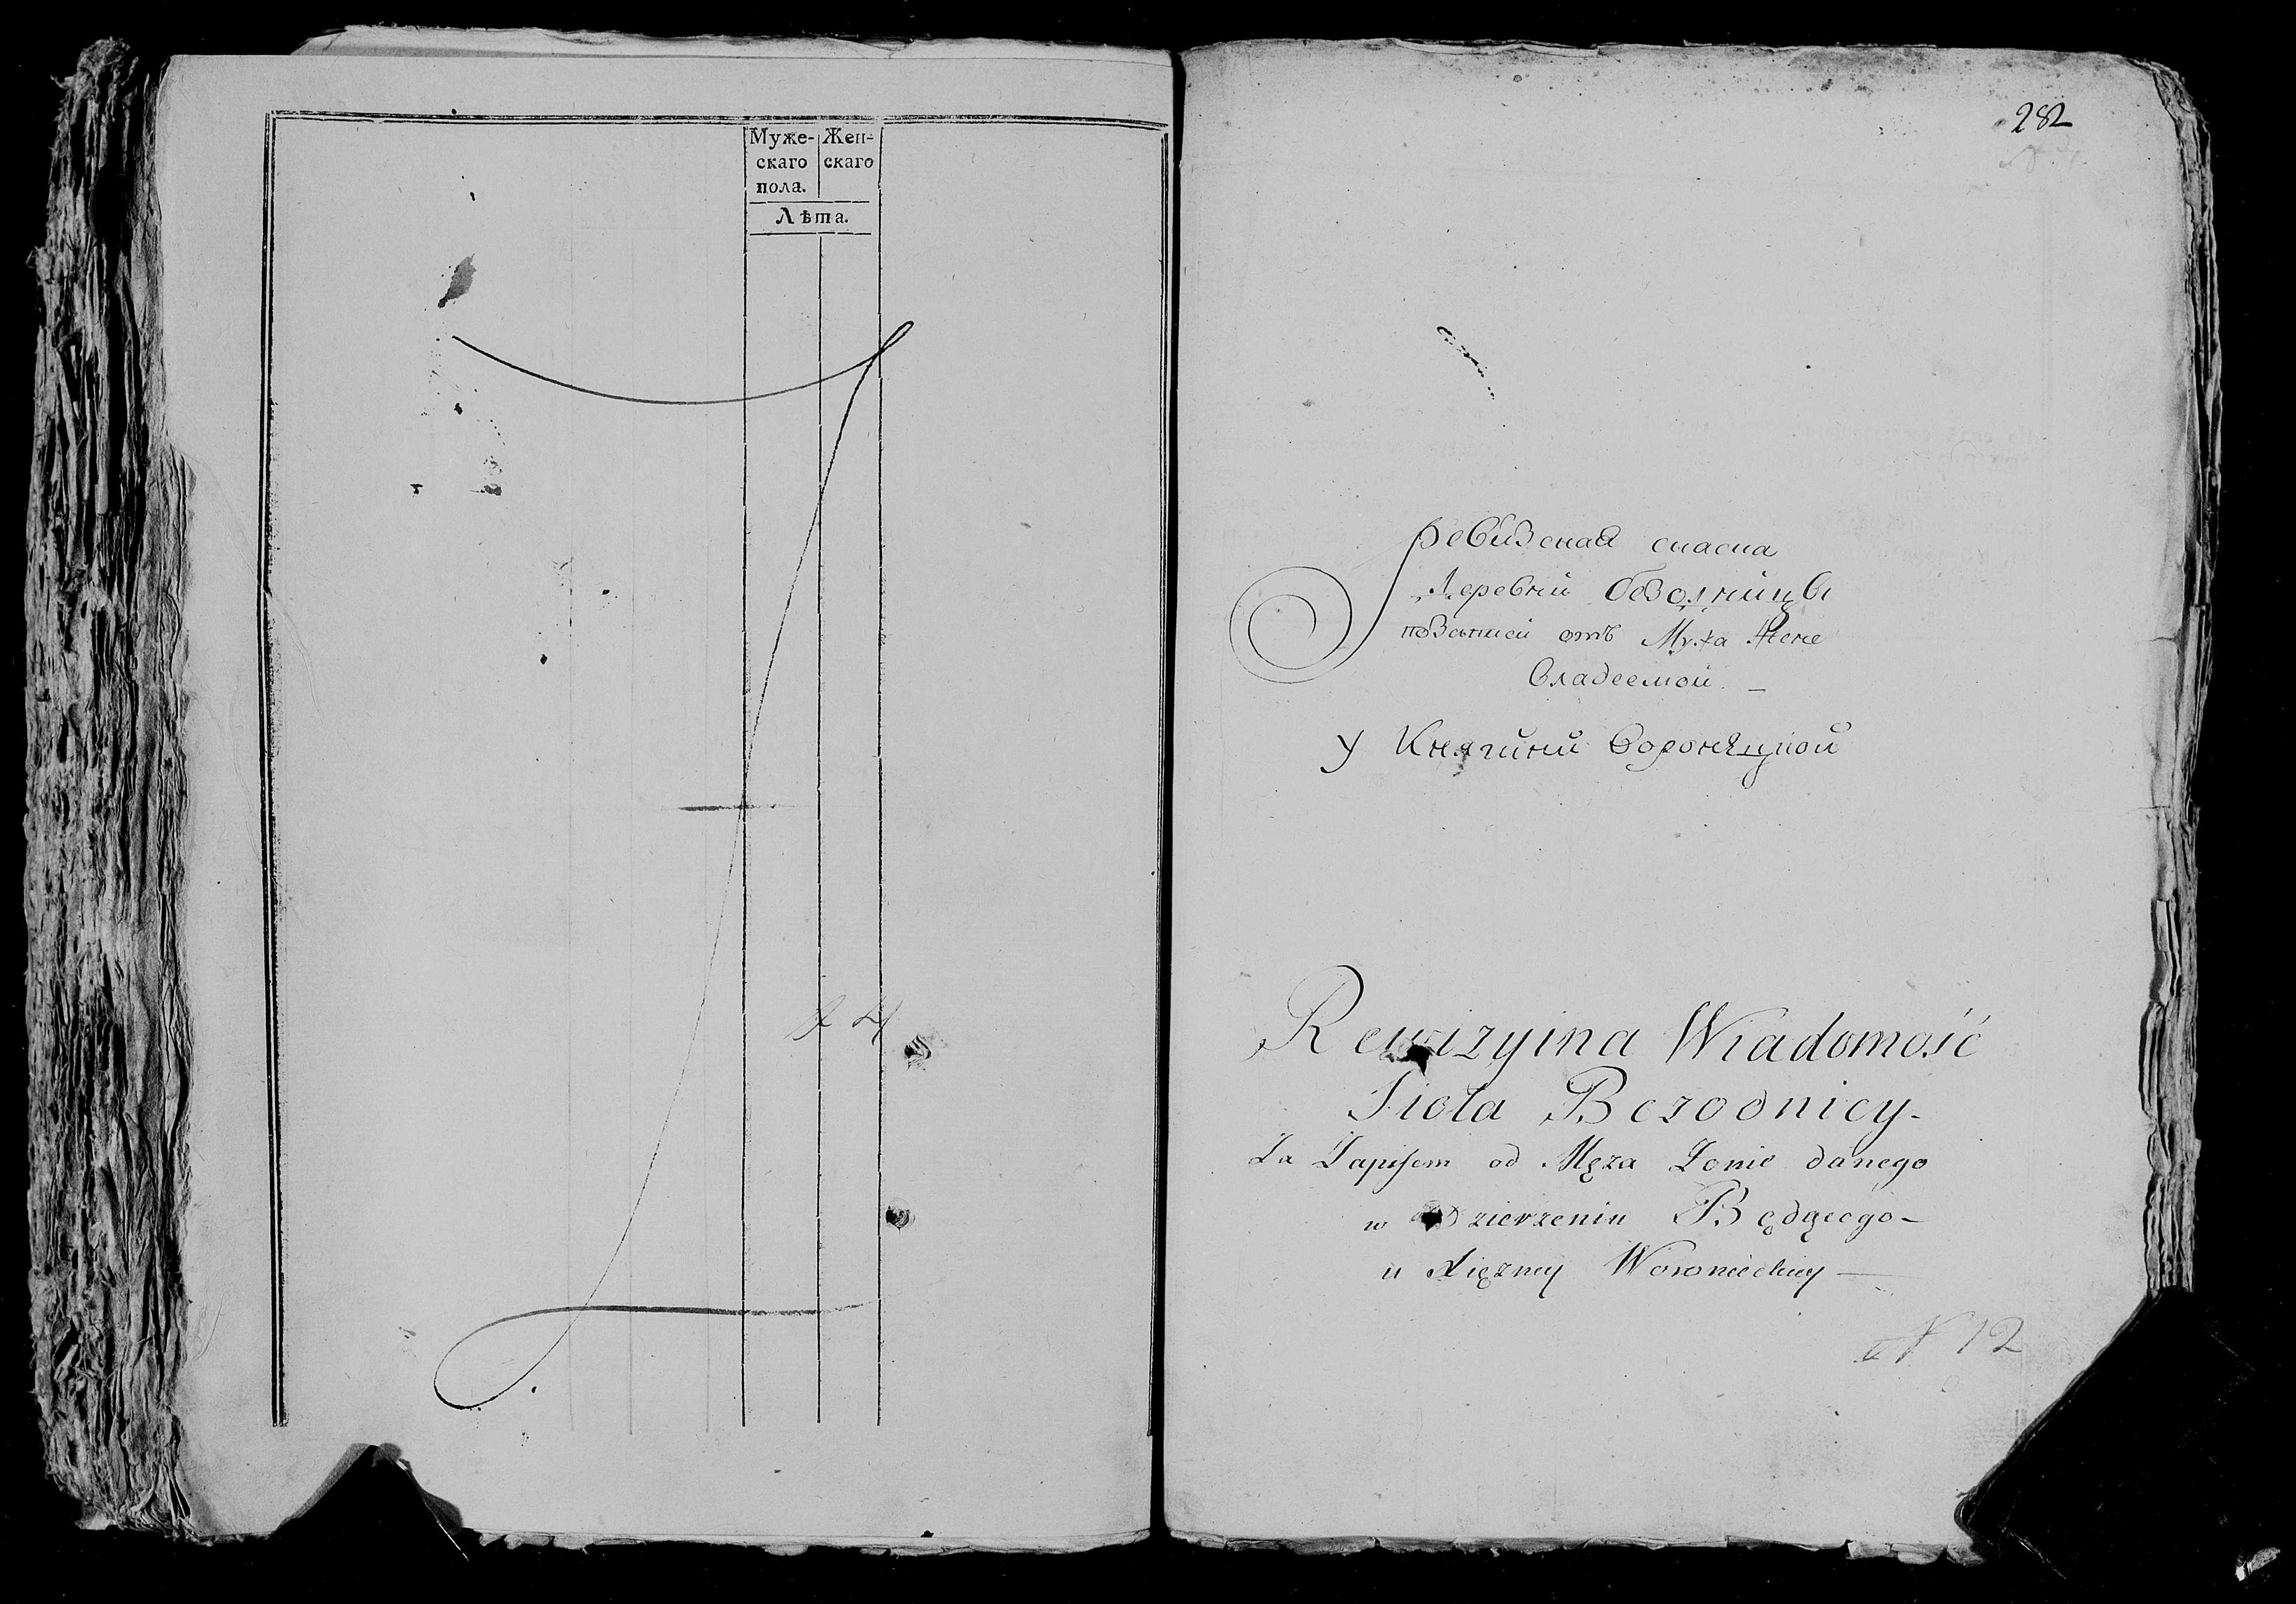 Муже-
скаго
пола.
Жен-
скаго
Лѣта.
282
Ревизская сказка
Деревни Безодницы
по Записи отъ Мужа Жене
владеемой. —
у Княгини Воронѣцкой
Rewizyina Wiadomość
Sioła Bezodnicy-
Za Zapisem od Męża Żonie danego
w Dzierżeniu Będącego —
u Xiężney Woronieckiey —
N 12